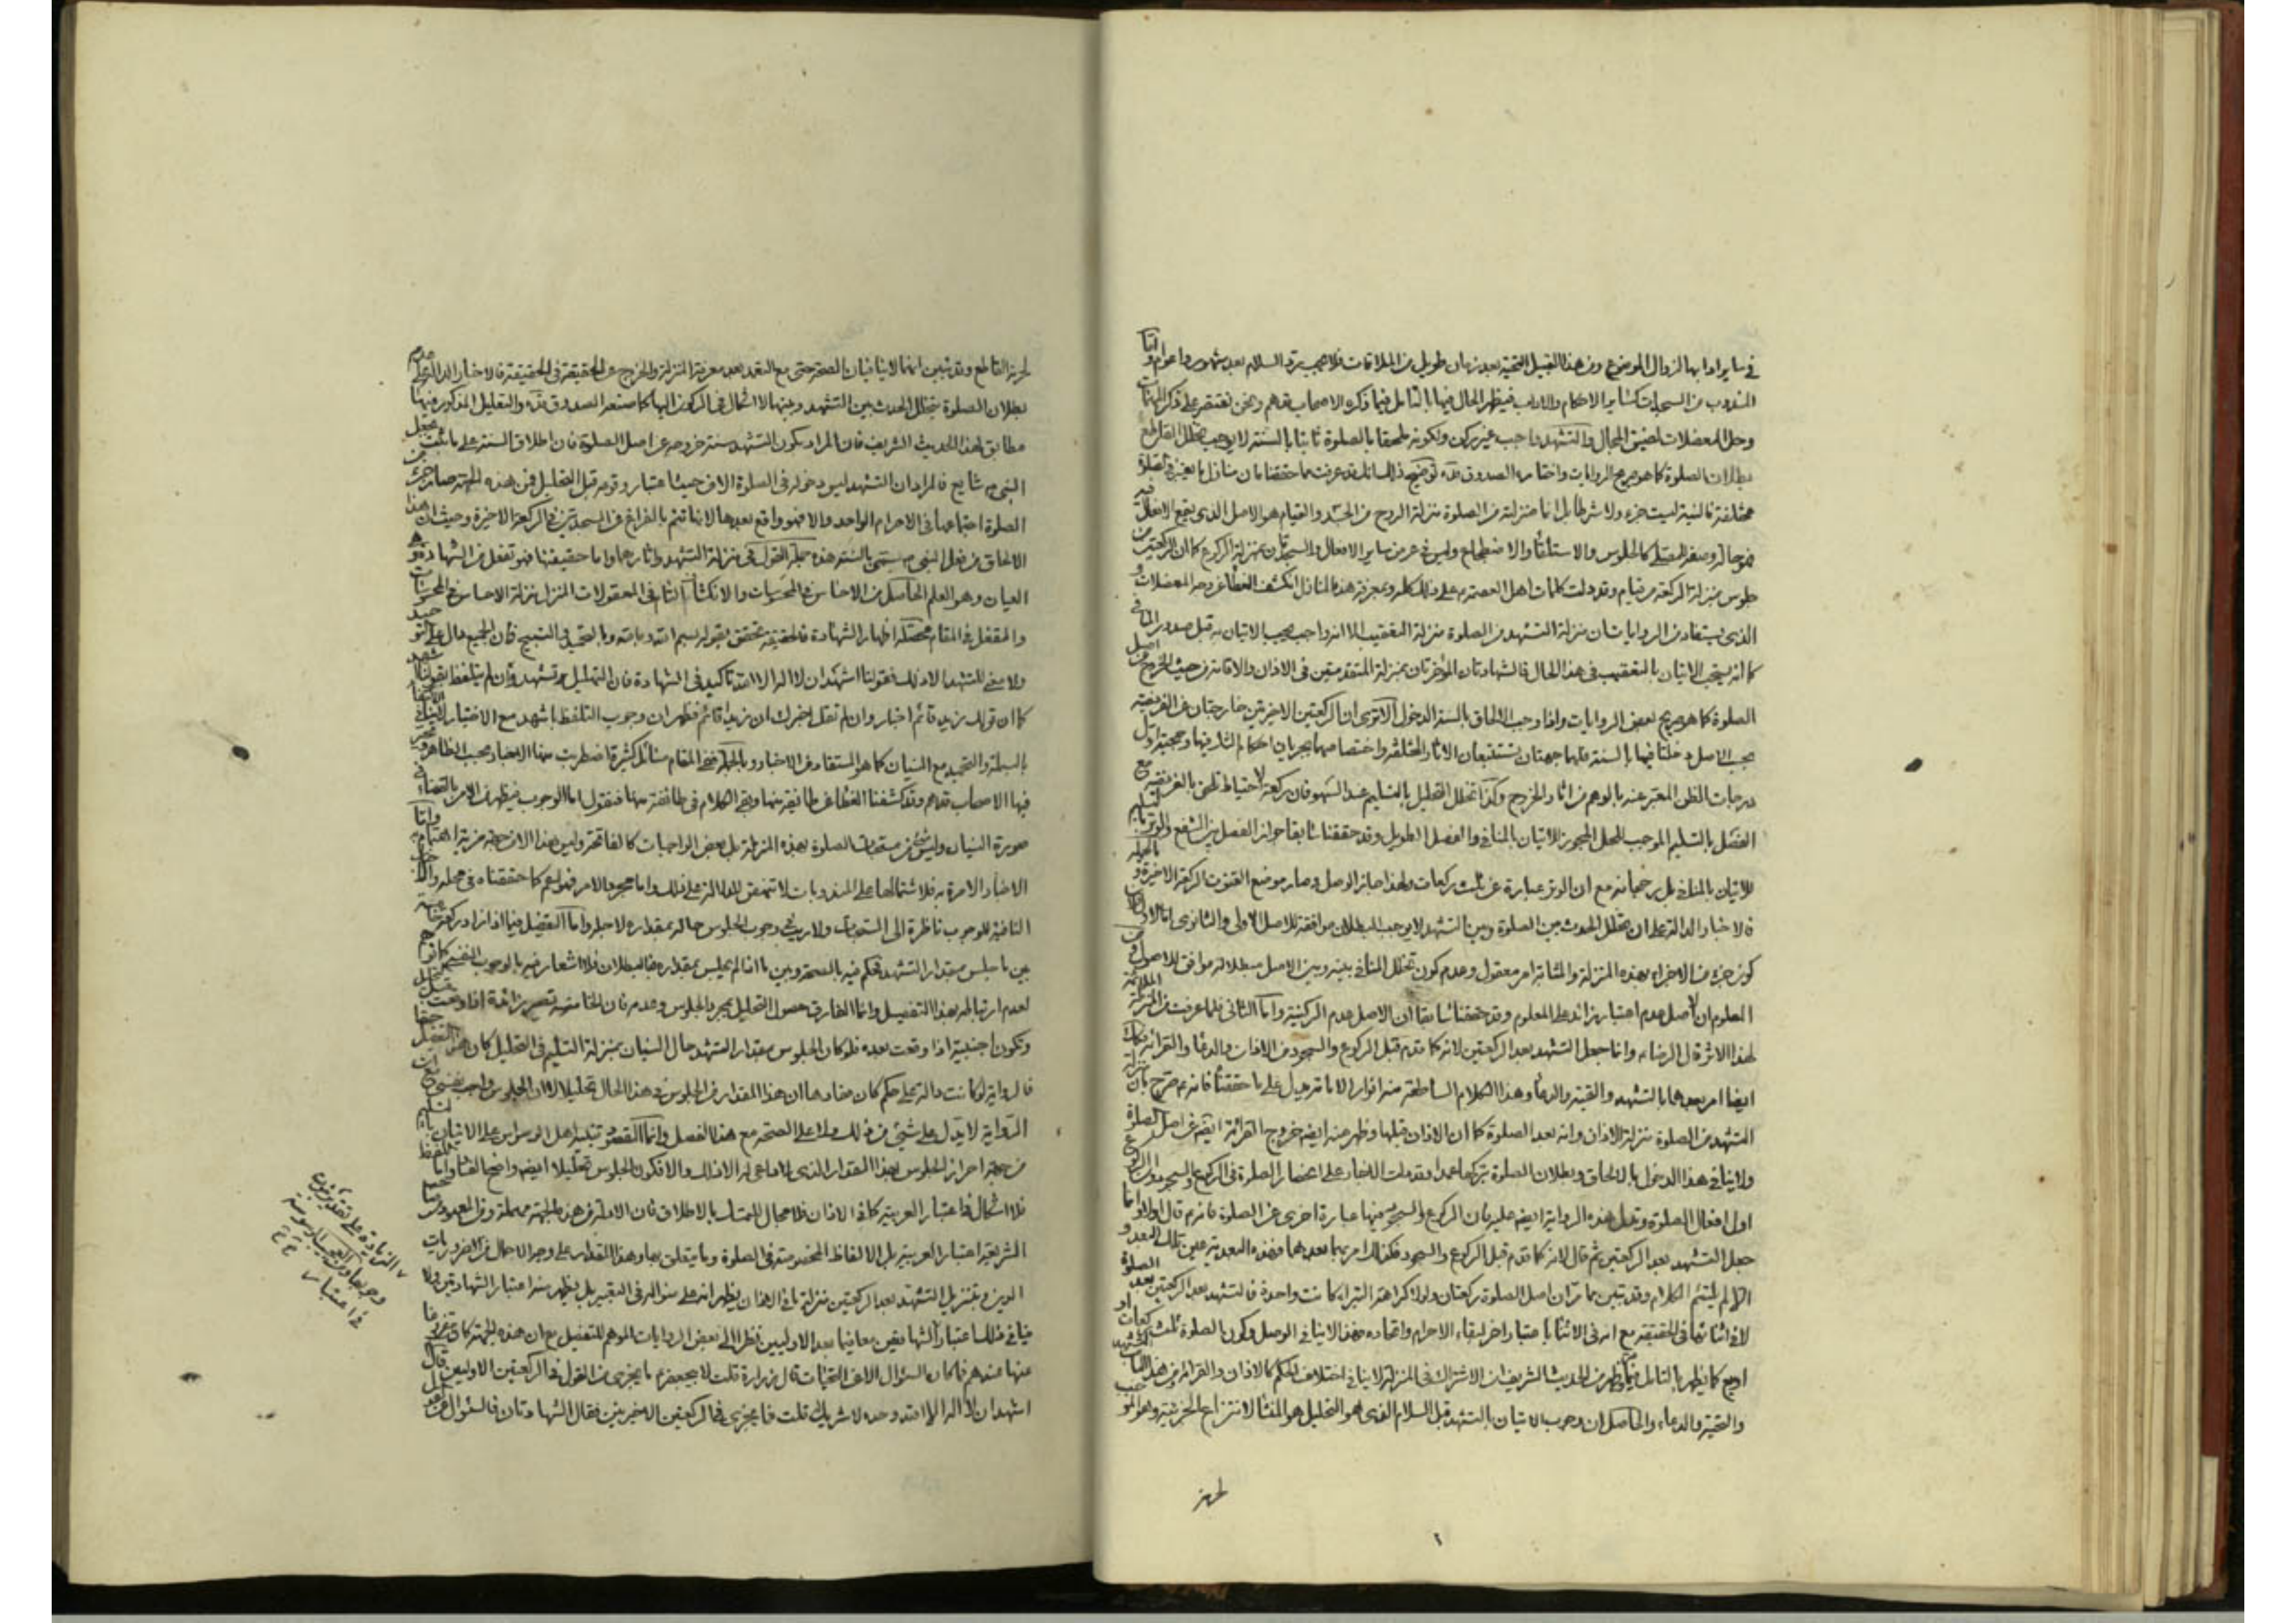 في ساير ادابها لزوال الموضوع ومن هذا القبيل التحية بعد زمان طويل من الملاقات فلا يجب رد السلام بعد شهور واعوام واما
المندوب من السجدات كسائر الاحكام والاداب فيظهر الحال فيها بالتامل فيما ذكره الاصحاب قدهم ونحن نقتصر على ذكر المهمات
وحل المعضلات لضيق المجال والتشهد واجب غير ركن ولكونه ملحقا بالصلوة ثابتا بالسنة لا يوجب تخلل القاطع
بطلان الصلوة كما هو صريح الروايات واختاره الصدوق قده توضيح ذلك انك قد عرفت مما حققنا ان منازل ما يعتبر في الصلوة
مختلفة فالنية ليست جزء ولا شرطا بل انما منزلته من الصلوة منزلة الروح من الجسد والقيام هو الاصل الذي يقع الافعال فيه
فهو حالة وصفة للمصلي كالجلوس والاستلقاء والاضطجاع وليس في عرض ساير الافعال والسجدتان بمنزلة الركوع كما ان الركعتين من
جلوس بمنزلة الركعة من قيام وقد دلت كلمات اهل العصمة ع على ذلك كله وبمعرفة هذه المنازل انكشف الغطاء عن وجه المعضلات و
الذي يستفاد من الروايات ان منزلة التشهد من الصلوة منزلة التعقيب الا انه واجب يجب الاتيان به قبل صدور المنافي
كما انه يستحب الاتيان بالتعقيب في هذا الحال فالشهادتان المؤخرتان بمنزلة المتقدمتين في الاذان والاقامة من حيث الخروج عن اصل
الصلوة كما هو صريح بعض الروايات وافاد وجب الالحاق بالسنة الدخول الا ترى ان الركعتين الاخيرتين خارجتان عن الفريضة
بحسب الاصل دخلتا فيها بالسنة فلهما جهتان تستتبعان الاثار المختلفة واختصاصهما بجريان احكام الشك فيهما وحجية اول
درجات الظن المعبر عنه بالوهم من اثار الخروج وكذا تخلل التحليل بالتسليم عند السهو فان ركعة الاحتياط تلحق بالفريضة مع
الفصل بالتسليم الموجب للحل المجوز للاتيان بالمنافي والفصل الطويل وقد حققنا سابقا جواز الفصل بين الشفع والوتر بالتسليم
للاتيان بالمنافي بل رجحانه مع ان الوتر عبارة عن ثلث ركعات ولهذا جاز الوصل وصار موضع القنوت الركعة الاخيرة و بالجملة
فالاخبار الدالة على ان تخلل الحدث بين الصلوة وبين التشهد لا يوجب البطلان موافقة للاصل الاولى والثانوى اما الاول
كون جزء من الاجزاء بهذه المنزلة والمثابة امر معقول وعدم كون تخلل المنافي بينه وبين الاصل مبطلا له موافق للاصول
المعلوم ان الاصل عدم اعتبار زائد على المعلوم وقد حققنا سابقا ان الاصل عدم الركنية واما الثاني فلما عرفت من المنزلة
لهذا الاثر قال الرضا ع وانما جعل التشهد بعد الركعتين لانه كما قدم قبل الركوع والسجود من الاذان والدعاء والقرائة
ايضا امر بعدهما بالتشهد والتحية والدعاء وهذا الكلام الساطعة منه انوار الامامة يدل على ما حققنا فانه ع صرح بان
التشهد من الصلوة منزلة الاذان وانه بعد الصلوة كما ان الاذان قبلها وظهر منه ايضا خروج القرائة ايضا عن اصل الصلوة
ولا ينافي هذا الدخول بالالحاق وبطلان الصلوة بتركها عمدا وقد دلت الاخبار على انحصار الصلوة في الركوع والسجود
اول افعال الصلوة وتدل هذه الرواية ايضا عليه فان الركوع والسجود فيها عبارة اخرى عن الصلوة فانه ع قال اولا وانما
جعل التشهد بعد الركعتين ثم قال لانه كما قدم قبل الركوع والسجود فكذلك امر بما بعدهما فهذه البعدية عين تلك البعدية و
الا لم يلتئم الكلام وقد تبين بما مر ان اصل الصلوة ركعتان ولولا كراهة البتراء كانت واحدة فالتشهد بعد الركعتين بعد الصلوة
لا في اثنائها في الحقيقة مع انه في الاثناء باعتبار اخر لبقاء الاحرام واتحاده فهذا لا ينافي الوصل وكون الصلوة ثلث ركعات او
اربع كما يظهر بالتامل فيه وظهر من الحديث الشريف ان الاشتراك في المنزلة لا ينافي اختلاف الحكم كالاذان والقرائة من هذا الباب التشهد
والتحية والدعاء والحاصل ان وجوب الاتيان بالتشهد قبل السلام الذي هو التحليل هو المنشأ لانتزاع الجزئية وهو الموجب
لحرمة
لحرمة القاطع وقد تبين انهما لا ينافيان الصحة حتى مع التعمد بعد معرفة المنزلة والخروج عن الحقيقة في الحقيقة فالاخبار الدالة على عدم
بطلان الصلوة بتخلل الحدث بين التشهد وبينها لا اشكال في الركون اليها كما صنعه الصدوق قده والتعليل المذكور فيها
مطابق لهذا الحديث الشريف فان المراد بكون التشهد سنة خروجه عن اصل الصلوة فان اطلاق السنة على ما ثبت بجعل
النبي ص شايع فالمراد ان التشهد ليس دخوله في الصلوة الا من حيث اعتبار وقوعه قبل التحليل فمن هذه الجهة صار جزء من
الصلوة اجتماعها في الاحرام الواحد والا فهو واقع بعدها لانها تتم بالفراغ من السجدتين في الركعة الاخيرة وحيث ان هذا
الالحاق من فعل النبي ص سمي بالسنة هذه جملة القول في منزلة التشهد واثارها واما حقيقتها فهو تفعل من الشهادة وهو
العيان وهو العلم الحاصل من الاحساس في المحسوسات والانكشاف التام في المعقولات المنزل منزلة الاحساس في المحسوسات
والتفعل في المقام محصله اظهار الشهادة فالحقيقة تتحقق بقوله بسم الله وبالله وبالتحميد والتسبيح فان الجميع دال على التوحيد
ولا معنى للتشهد الا ذلك فقولنا اشهد ان لا اله الا الله تاكيد في الشهادة فان التهليل تشهد وان لم يتلفظ بقولنا اشهد
كما ان قولك زيد قائم اخبار وان لم تقل اخبرك ان زيدا قائم فظهر ان وجوب التلفظ باشهد مع الاختيار لا ينافي الاكتفاء
بالبسملة والتحميد مع النسيان كما هو المستفاد من الاخبار وبالجملة ففي المقام مسائل كثيرة اضطربت منها الاخبار بحسب الظاهر وتحير
فيها الاصحاب قدهم وقد كشفنا الغطاء عن طائفة منها وبقي الكلام في طائفة منها فنقول اما الوجوب فيظهر من الامر بالقضاء في
صورة النسيان وليس شيء من مستحبات الصلوة بهذه المنزلة بل بعض الواجبات كالفاتحة وليس هذا الا من جهة مزية اهتمام به واما
الاخبار الامرة به فلاشتمالها على المندوبات لا تنهض للدلالة على ذلك واما مجرد الامر فهو اعم كما حققناه في محله
النافية للوجوب ناظرة الى التحيات ولا ريب في وجوب الجلوس حاله بمقداره لاجله واما التفصيل فيما اذا زاد ركعة خامسة
بين ما جلس مقدار التشهد فحكم فيه بالصحة وبين ما اذا لم يجلس بمقداره فالبطلان فلا اشعار فيه بالوجوب النفسي كما توهم
لعدم ارتباطه بهذا التفصيل وانما الفارق حصول التحليل بمجرد الجلوس وعدمه فان الخامسة تصير زائدة اذا وقعت قبل التحليل
وتكون اجنبية اذا وقعت بعده فلو كان الجلوس مقدار التشهد حال النسيان بمنزلة التسليم في التحليل كان هذا التفصيل حقا
فالرواية لو كانت دالة على حكم كان مفادها ان هذا المقدار من الجلوس في هذا الحال تحليلا لا ان الجلوس واجب نفسي
الرواية لا يدل على شيء من ذلك ولا على الصحة مع هذا الفصل وانما المقصود تنبيه اهل الوسواس على الاتيان بالتسليم
من جهة احراز الجلوس بهذا المقدار الذي لا داعي له الا ذلك والا فكون الجلوس تحليلا ايضا واضح الفساد واما
فلا اشكال في اعتبار العربية كما في الاذان فلا مجال للتمسك بالاطلاق فان الادلة من هذه الجهة مهملة ومن المعهود من
الشريعة اعتبار العربية بل الالفاظ المخصوصة في الصلوة وما يتعلق بها وهذا المقدار على وجه الاجمال من الضروريات
الدين وبتنزيل التشهد بعد الركعتين منزلة ما في الاذان يظهر انه على منواله في التعبير بل يظهر منه اعتبار الشهادتين ولا
ينافي ذلك اعتبار الشهادتين معا فيما بعد الاوليين نظرا الى بعض الروايات الموهم للتفصيل مع ان هذه الجهة كان مفروغا
عنها عندهم فما كان السؤال الا عن التحيات قال زرارة قلت لابيجعفر ع ما يجزي من القول في الركعتين الاوليين قال ان تقول
اشهد ان لا اله الا الله وحده لا شريك له قلت فما يجزي في الركعتين الاخيرتين فقال الشهادتان فالسؤال عن